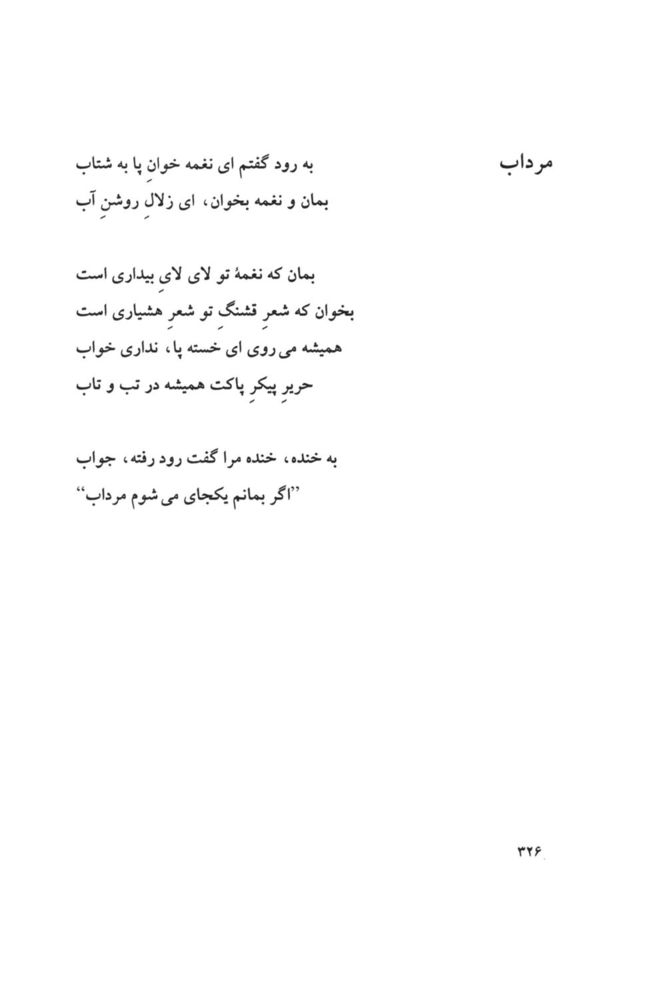 مرداب
به رود گفتم ای نغمه خوانِ پا به شتاب
بمان و نغمه بخوان، ای زلالِ روشنِ آب
بمان که نغمهٔ تو لای لایِ بیداری است
بخوان که شعرِ قشنگِ تو شعرِ هشیاری است
همیشه می روی ای خسته پا، نداری خواب
حریرِ پیکرِ پاکت همیشه در تب و تاب
به خنده، خنده مرا گفت رود رفته، جواب
”اگر بمانم یکجای می شوم مرداب“
۳۲۶